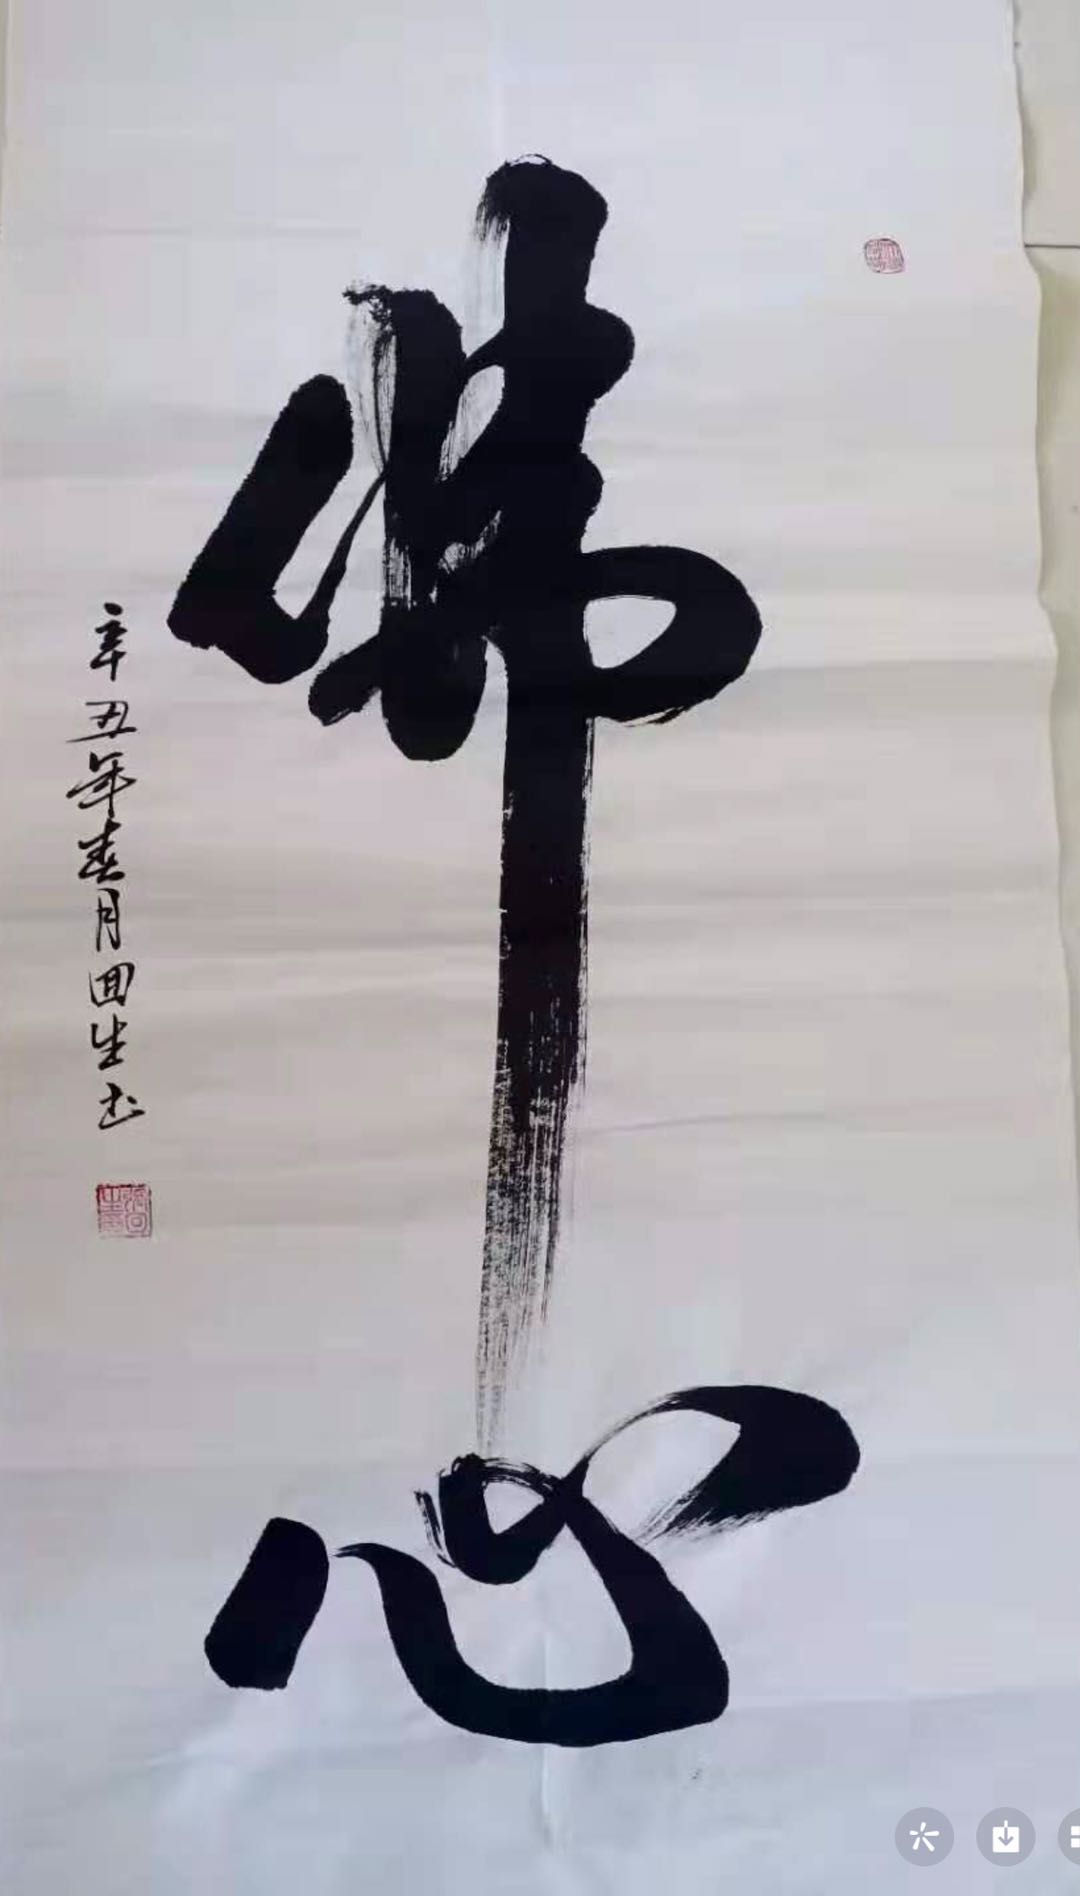 佛心
辛丑年春月回生书